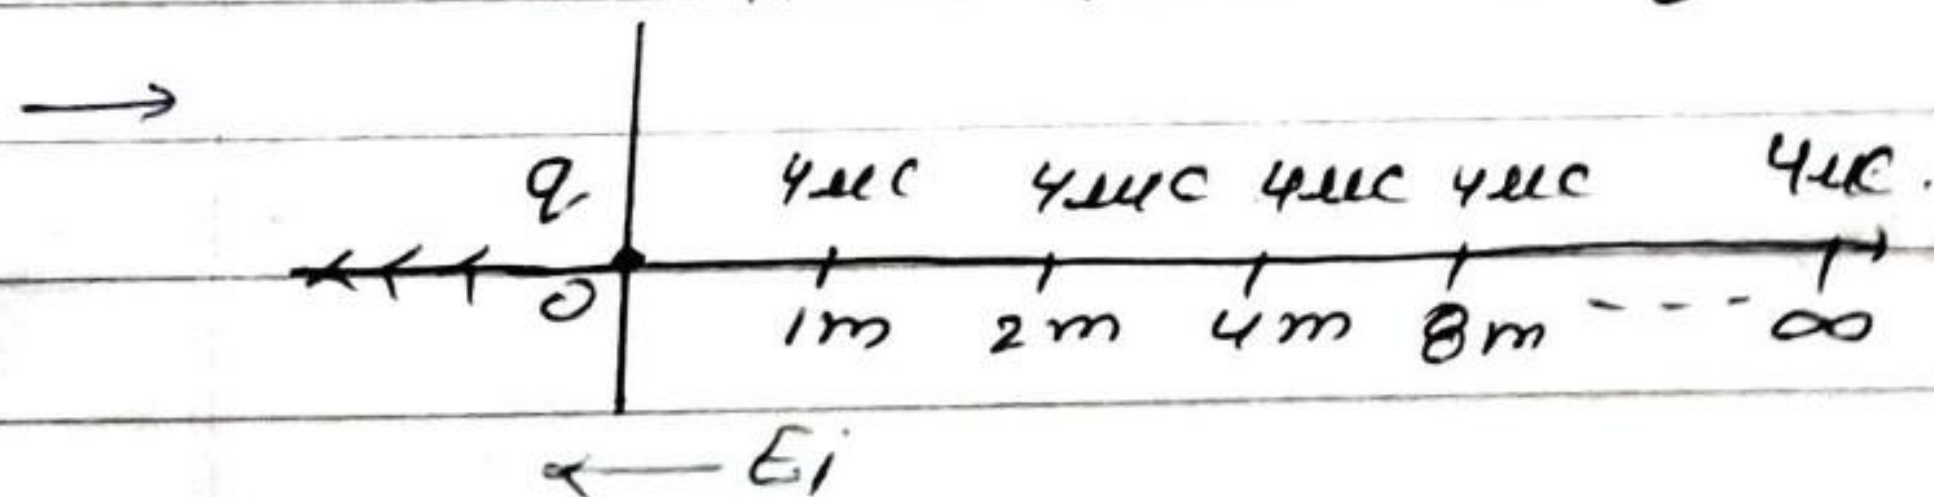 →
q 4μc 4μc 4μc 4μc 4μc.
0 1m 2m 4m 8m - - - ∞
← Ei